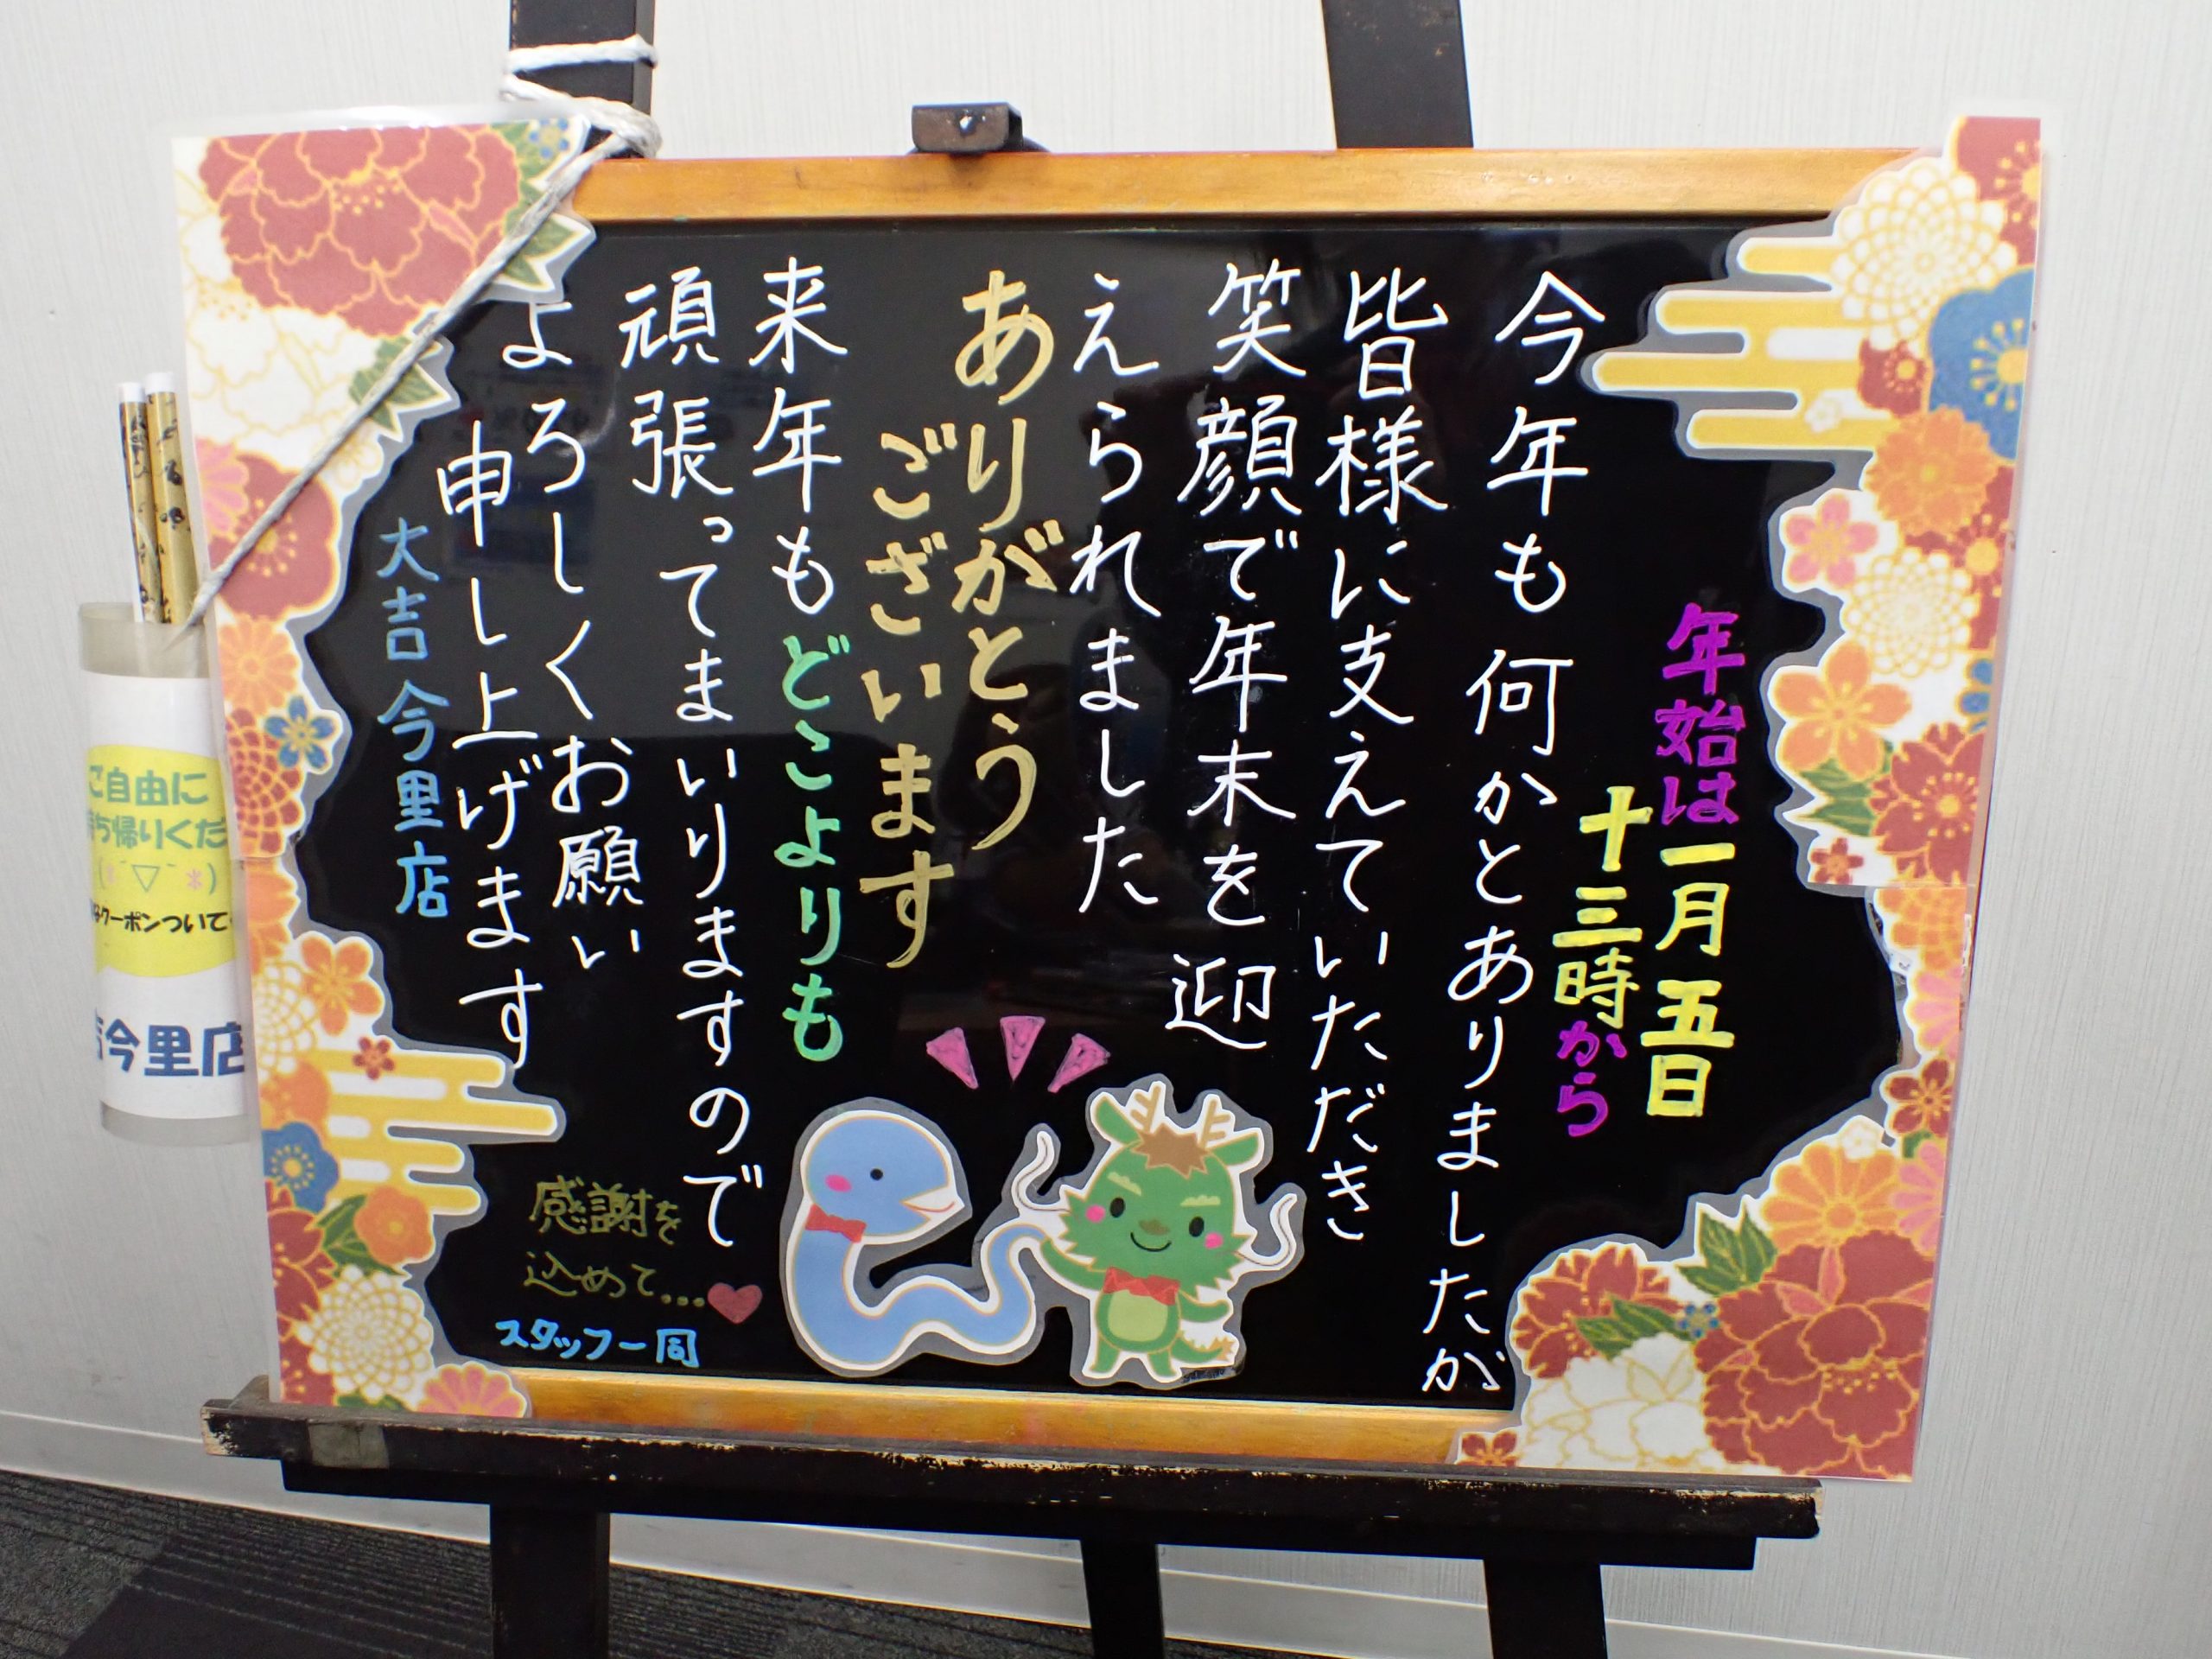 年始は一月五日
十三時から
今年も何かとありましたが
皆様に支えていただき
笑顔で年末を迎
えられました
ありがとう
ございます
来年もどこよりも
頑張ってまいりますので
よろしくお願い
申し上げます
大吉今里店
感謝を
込めて...
スタッフ一同
ご自由に
ち帰りくだ
クーポンついて
今里店